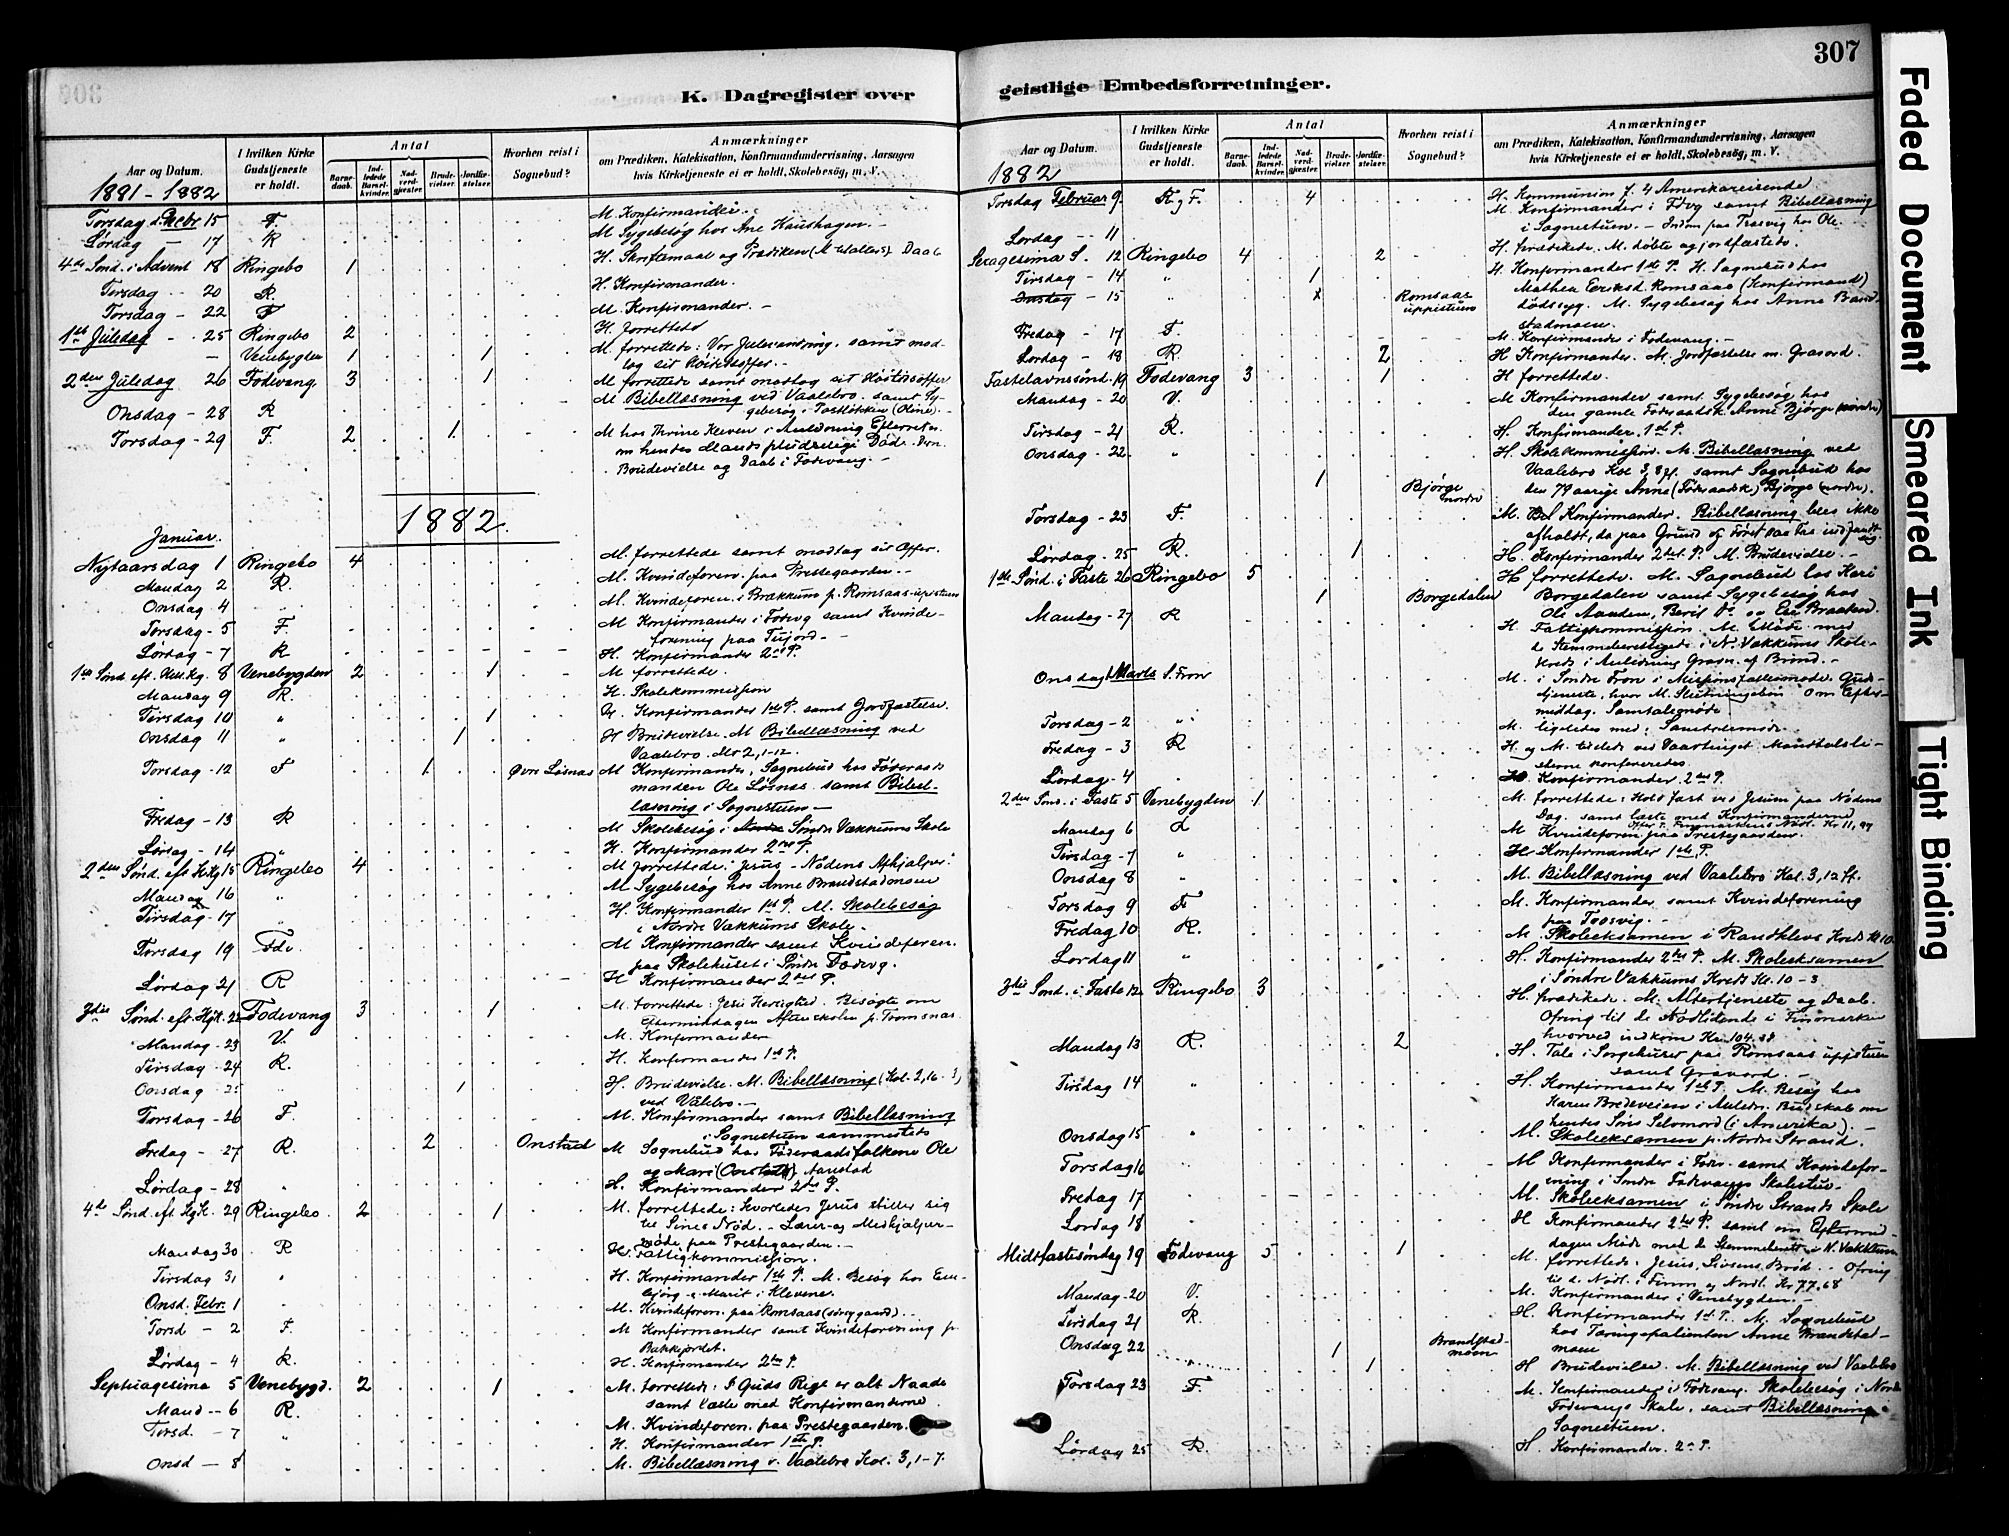 307
K. Dagregister over
geistlige Embedsforretninger.
Faded Document
Smeared Ink
Tight Binding
Aar og Datum.
I hvilken Kirke
Gudstjeneste
er holdt.
Antal
Barne-
daab.
Ind-
ledede
Barsel-
kvinder.
Nad-
verd-
gjæster.
Brude-
vielser.
Jordfæ-
stelser.
Hvorhen reist i
Sognebud?
Anmærkninger
om Prædiken, Katekisation, Konfirmandundervisning, Aarsagen
hvis Kirketjeneste ei er holdt, Skolebesög, m. V.
1881 - 1882
Torsdag d. Decbr 15 F. M. Konfirmander.
Lørdag - 17 R M Sygebesøg hos Ane Haushagen.
4de Sønd. i Advent 18 Ringebo 1 H. Skriftemaal og Prædiken Daab
Tirsdag - 20 R. H. Konfirmander.
Torsdag - 22 F M. Konfirmander. -
1ste Juledag - 25 Ringebo 2 H. forrettede
- Venebygden 1 1 M. forrettede: Vor Julevandring, samt mod-
tog sit Höitidsoffer. -
2den Juledag 26 Fodevang. 3 1 M forrettede samt modtog sit Høitidsoffer
Onsdag - 28 R M Bibellæsning ved Vaalebro. samt Sy-
gebesøg i (Oline).
Torsdag - 29 F. 2 1. M hos Thrine Kleven i Anledning Efterretn.
om hendes Mands pludselige Død. Den
Brudevielse og Daab i Fodevang. -
1882.
Januar.
Nytaarsdag 1 Ringebo 4 M. forrettede samt modtog sit Offer.
Mandag 2 R. M. Kvindeforen. paa Prestegaarden. -
Onsdag 4 M. Kvindeforen. i Brækkum p. Romsaas-uppistuen
Torsdag - 5 F. M Konfirmander i Fodvg samt Kvinde-
forening paa
Lørdag - 7 R H. Konfirmander 2den P.
1ste Sønd. eft. Hell. Kg. 8 Venebygden 2 1 M forrettede.
Mandag 9 R. H. Skolekommission
Tirsdag 10 " 1 Konfirmander 1ste P. samt Jordfæstelse.
Onsdag 11 " 1 H Brudevielse. M Bibellæsning ved
Vaalebro. Kol 2, 1-12.
Torsdag - 12 F 1. Øvre Løsnæs M Konfirmander, Sognebud hos Föderaads-
manden Ole Løsnæs. samt Bibel-
læsning i Sognestuen -
Fredag - 13 R M Skolebesøg i Søndre Vækkums Skole
Lørdag - 14 " H. Konfirmander 2den P.
2den Sønd. eft H.Kg 15 Ringebo 4 M forrettede: "Jesus - Nödens Afhjælper."
Mandag 16 " M Sygebesøg hos Anne Brandstadmoen
Tirsdag - 17 " H. Konfirmander 1ste P. M. Skolebesøg
i Nordre Vækkums Skole.
Torsdag 19 Fdv. M Konfirmander samt Kvindeforen.
paa Skolehuset i Søndre Fodevg.
Lørdag 21 R H Konfirmander 2den P.
3die Sønd. eft. Hgk. 22 Fodevang 3 1 M. forrettede: Jesu Herlighed. Besøgte om
Eftermiddagen Aftenskolen p. Tromsnæs.
Mandag - 23 V. M. Konfirmander
Tirsdag - 24 R. H. Konfirmander 1ste P.
Onsdag - 25 1 H. Brudevielse. M. Bibellæsning (Kol. 2, 16 - 3,
ved Vålebro. -
Torsdag - 26 F. M. Konfirmander samt Bibellæsning
i Sognestuen sammesteds
Fredag - 27 R. 2 Onstad M Sognebud hos Föderaadsfolkene Ole
og Mari (Onstad) Aanstad
Lørdag - 28 " H. Konfirmander 2den P.
4de Sønd. eft Hgk. 29 Ringebo. 2 1 M. forrettede: Hvorledes Jesus stiller sig
til Sines Nød. - Lærer- og Medhjælper-
møde paa Prestegaarden. -
Mandag 30 R H. Fattigkommission.
Tirsdag 31 " H. Konfirmander 1ste P. M. Besøg hos Em-
bjørg & Marit i Klevene.
Onsd. Febr. 1 " M. Kvindeforen. paa Romsaas
Torsd - 2 F. M Konfirmander samt Kvindeforening p.
Bakkejordet.
Lørdag - 4 R. H. Konfirmander 2den P.
Septuagesima 5 Venebygd. 2 1 M. forrettede: I Guds Rige er alt Naade
samt læste med Konfirmanderne
Mand - 6 R. M. Kvindeforen. paa Prestegaarden.
Tirsd. - 7 " H. Konfirmander 1ste P.
Onsd - 8 " M. Bibellæsning v. Vaalebro Kol. 3, 1-7.
Aar og Datum.
I hvilken Kirke
Gudstjeneste
er holdt.
Antal
Barne-
daab.
Ind-
ledede
Barsel-
kvinder.
Nad-
verd-
gjæster.
Brude-
vielser.
Jordfæ-
stelser.
Hvorhen reist i
Sognebud?
Anmærkninger
om Prædiken, Katekisation, Konfirmandundervisning, Aarsagen
hvis Kirketjeneste ei er holdt, Skolebesög, m. V.
1882
Torsdag Februar 9. R. og F. 4 H. Kommunion f. 4 Amerikareisende
M Konfirmander i Fdvg samt Bibellæsning
i Sognestuen. - hos Ole
Lørdag - 11
Sexagesima S. 12 Ringebo 4 2 H. prædikede. M. døbte og jordfæstede.
Tirsdag - 14 " 1 H Konfirmander 1ste P. H. Sognebud hos
Onsdag - 15 " Romsaas uppistuen Mathea Eriksd. Romsaas (Konfirmand)
dødssyg. M. Sygebesøg hos Anne Brand-
stadmoen.
Fredag - 17 F. M. Konfirmander i Fodevang. -
Lørdag - 18 R. 2 H Konfirmander. M. Jordfæstelse m. Gravord.
Fastelavnssönd. 19 Fodevang 3 1 H forrettede.
Mandag - 20 V. M Konfirmander samt Sygebesøg hos
den gamle Föderaadsk. Anne Bjørge (nordre)
Tirsdag - 21 R. H. Konfirmander 1ste P.
Onsdag - 22 " H. Skolekommission. M. Bibellæsning ved
1 Bjørge nordre Vaalebro Kol 3, 8 ff. samt Sognebud hos
den 79 aarige Anne (Föderaadsk) Bjørge (nordre).
Torsdag - 23 F. M. Konfirmander. Bibellæsning blev ikke
afholdt, da paa Grund af Føret
Lørdag - 25 R. 1 H. Konfirmander 2den P. M. Brudevielse. -
1ste Sønd. i Faste 26 Ringebo 5 H forrettede. M. Sognebud hos Kari
1 Borgedalen Borgedalen samt Sygebesøg hos
Ole Aanden, Berit Do og Eri Braaten.
Mandag - 27 R H. Fattigkommission. M. Møde med
de Stemmeberettigede i N. Vækkums Skole-
kreds i Anledning
Onsdag 1 Marts S. Fron M. i Søndre Fron i Missionsfællesmøde. Guds-
tjeneste, hvor M. Slutningsbön. Om Efter-
middag. Samtalemøde
Torsdag - 2 " M. ligeledes med: Samtalemøde.
Fredag - 3 R H. og M. tilstede ved Vaartinget. Mandtalsli-
sterne konfereredes.
Lørdag - 4 " H. Konfirmander. 2den P.
2den Sønd. i Faste 5 Venebygden 1 M. forrettede: Hold fast ved Jesum paa Nødens
Dag. samt læste med Konfirmanderne
Kr 11,97
Mandag 6 R M Kvindeforen. paa Prestegaarden.
Tirsdag - 7 " H. Konfirmander 1ste P.
Onsdag 8 " M. Bibellæsning ved Vaalebro Kol. 3, 12 ff.
Torsdag 9 F M. Konfirmander samt Kvindeforening
paa
Fredag 10 R. M. Skoleeksamen i Randklevs Kreds Kl 10
Lørdag 11 " H. Konfirmander 2den P. M. Skoleeksamen
i Søndre Vækkums Kreds Kl. 10 - 3
3die Sønd. i Faste 12 Ringebo 3 H. prædikede. M. Altertjeneste og Daab.
Ofring til de Nødlidende i Finmarken
hvorved indkom Kr. 104.38
Mandag 13 R. 2 H. Tale i Sørgehuset paa Romsaas uppistuen
samt Gravord. -
Tirsdag 14 " H. Konfirmander 1ste P. M. Besøg hos
Karen Bredeveien i Anledn. Budskab om
hendes Søns Selvmord (i Amerika). -
Onsdag 15 " M. Skoleeksamen p. Nordre Strand.
Torsdag 16 M Konfirmander i Fodv. samt Kvindefor-
ening i Søndre Fodevangs Skolestue.
Fredag 17 M. Skoleeksamen i Søndre Strands Skole
Lørdag 18 H Konfirmander 2den P. samt om Eftermid-
dagen Møde med de Stemmeberett. i N. Vækkum
Midtfastesöndag 19 Fodevang 5 1 M. forrettede: Jesus, Livsens Brød. - Ofring
til d. Nødl. i Finm. og Nordl. Kr 77,68
Mandag - 20 V. M. Konfirmander i Venebygden. -
Tirsdag 21 R. H. Konfirmander 1st P. M. Sognebud
Onsdag 22 1 Brandstad-moen hos Tæringspatienten Anne Brandstad-
moen
" 1 H Brudevielse. M. Bibellæsning ved Vaalebro
Torsdag 23 F. M. Konfirmander i Fodevang. Skolebesøg i Nordre
Fodevangs Skole, samt Bibellæsning
Sognestuen.
Lørdag 25 R. H Konfirmander. 2den P.